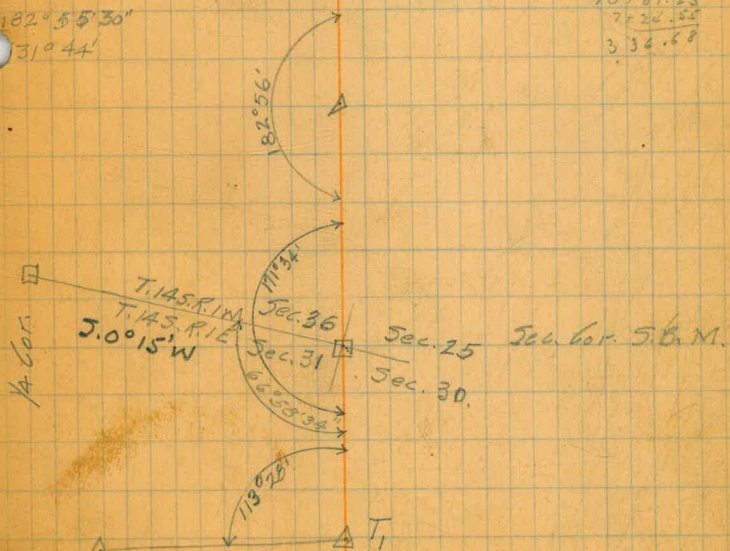 182° 55' 30"
31° 44'
3 36.68
182° 56'
171° 34'
T.14S.R.1W.
T.14S.R.1E.
S.0° 15' W
Sec. 36
Sec. 31
Sec. 25
Sec. 30.
Sec. Cor. S.B.M.
1/4 Cor.
66° 58' 34"
113° 28'
T1